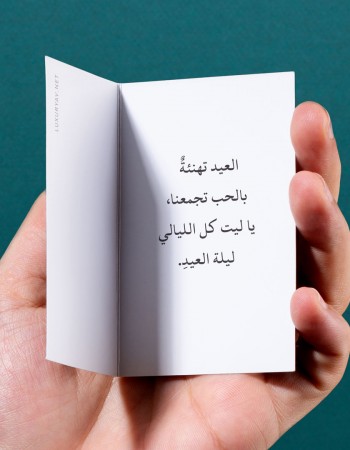 العيد تهنئةٌ
بالحب تجمعنا،
يا ليت كل الليالي
ليلة العيدِ.